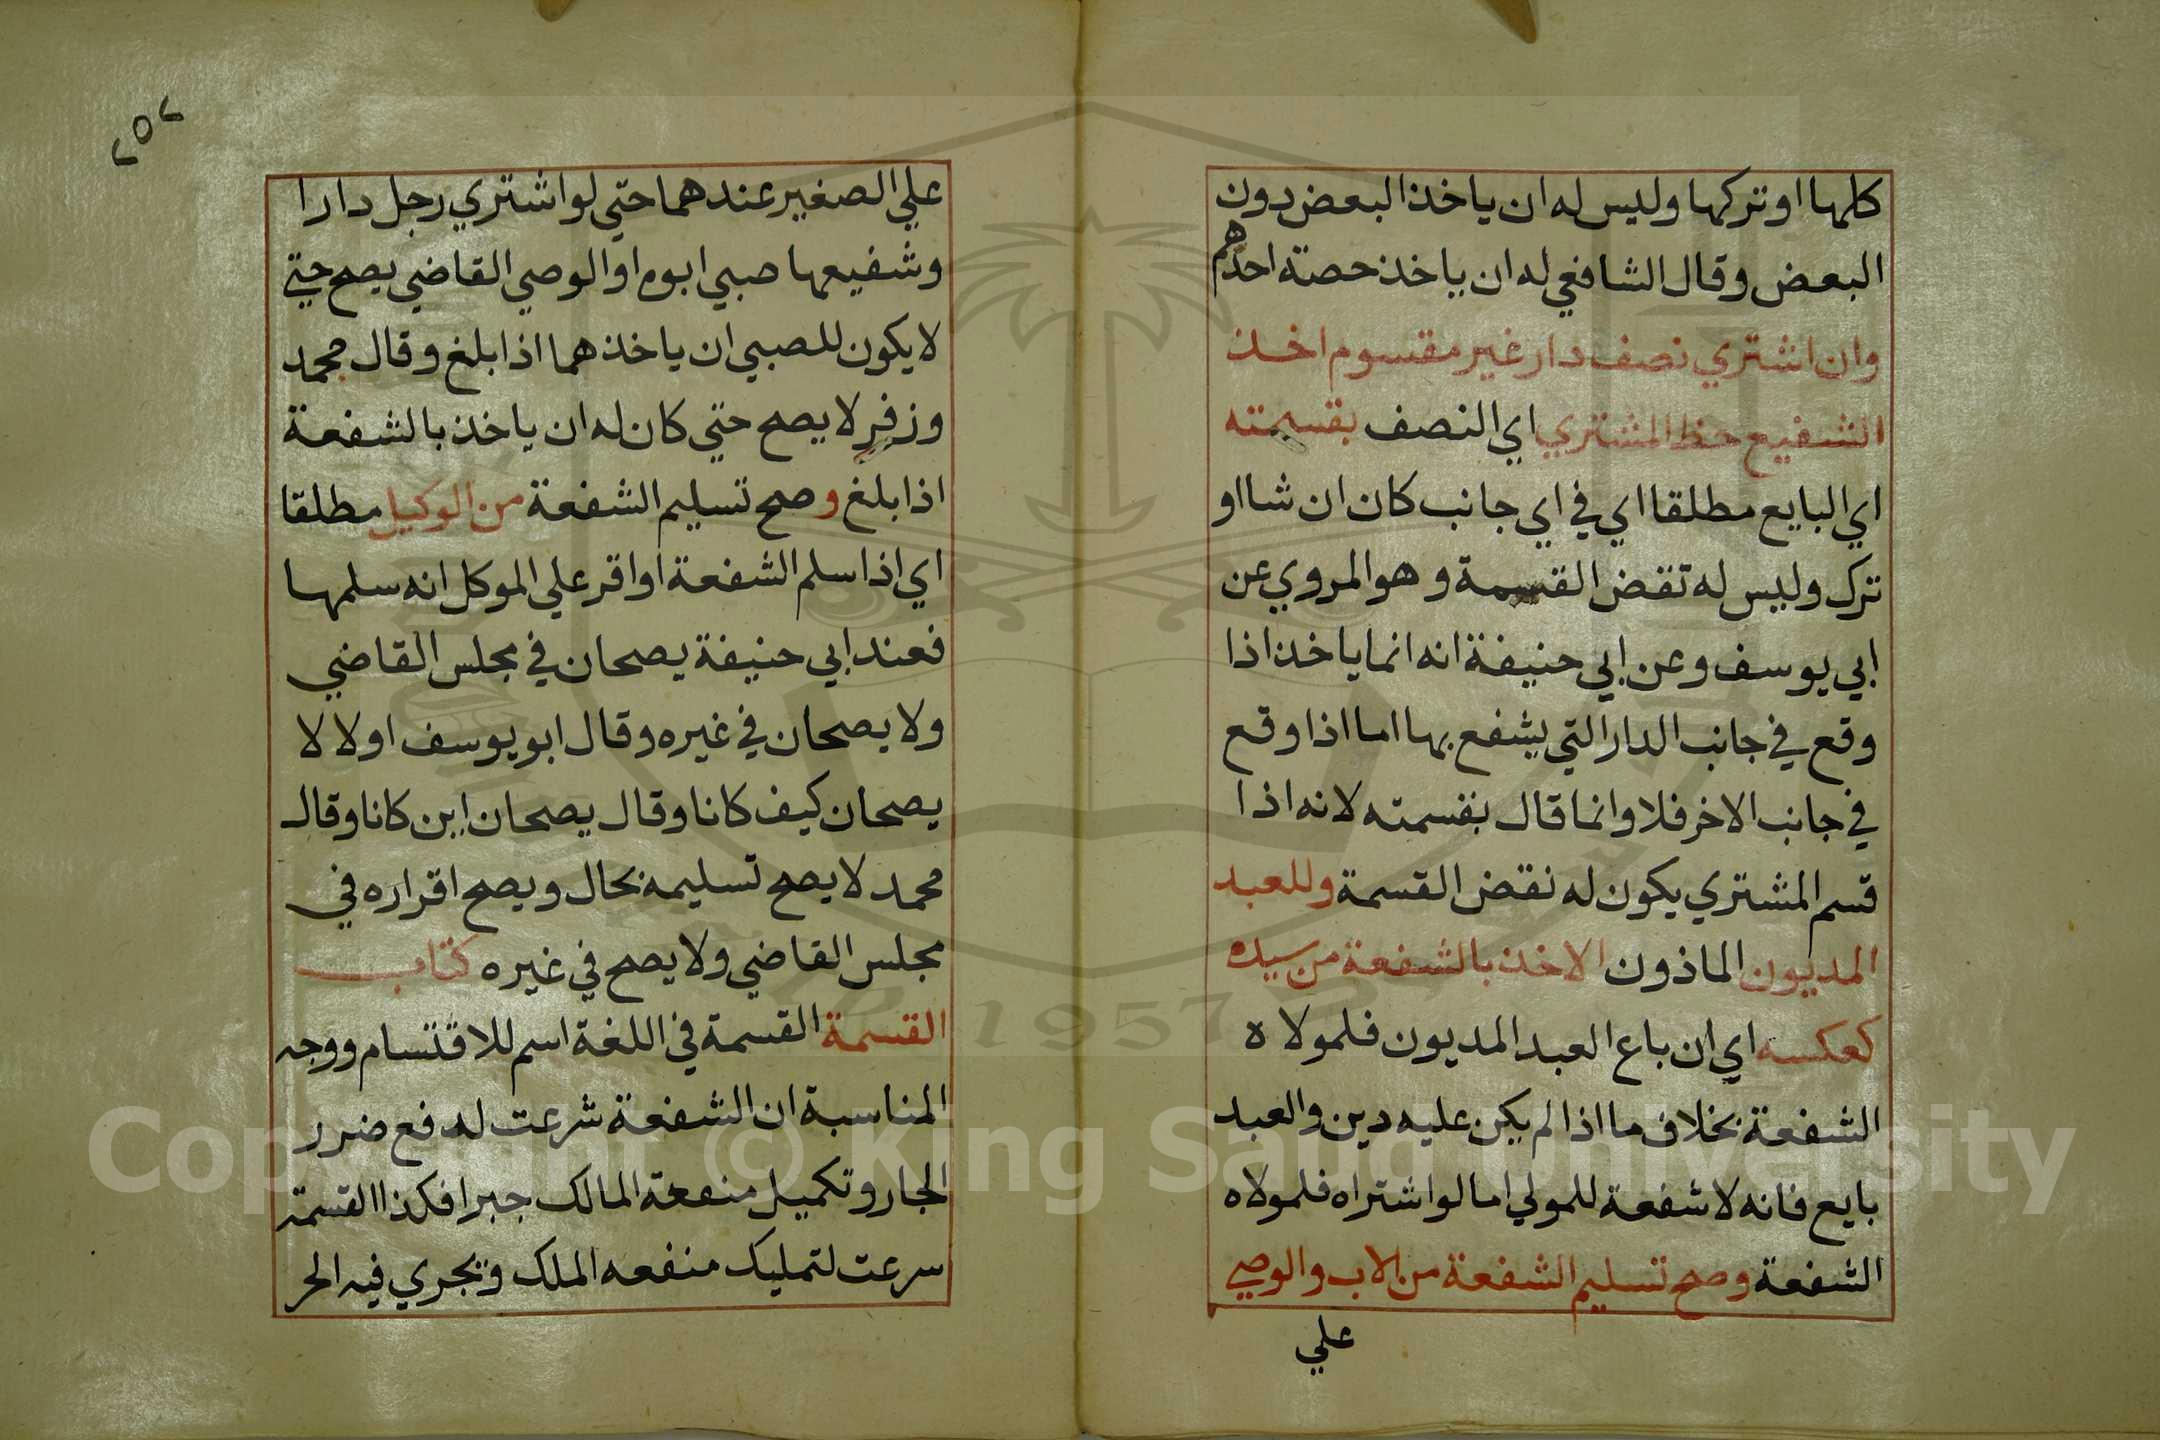 كلها او تركها وليس له ان ياخذ البعض دون
البعض وقال الشافعي له ان ياخذ حصته احدهم
وان اشتري نصف دار غير مقسوم اخذ
الشفيع حظ المشتري اي النصف بقسمته
اي البايع مطلقا اي في اي جانب كان ان شا او
ترك وليس له تقض القسمة و هو المروي عن
ابي يوسف وعن ابي حنيفة انه انما ياخذ اذا
وقع في جانب الدار التي يشفع بها اما اذا وقع
في جانب الاخر فلا وانما قال بقسمته لانه اذا
قسم المشتري يكون له نقض القسمة وللعبد
المديون الماذون الاخذ بالشفعة من سيده
كعكسه اي ان باع العبد المديون فلمولاه
الشفعة بخلاف ما اذا لم يكن عليه دين والعبد
بايع فانه لا شفعة للمولي اما لو اشتراه فلمولاه
الشفعة وصح تسليم الشفعة من الاب والوصي
علي
٢٥٢
علي الصغير عندهما حتي لو اشتري رجل دارا
وشفيعها صبي ابوه او الوصي القاضي يصح حتي
لا يكون للصبي ان ياخذهما اذا بلغ وقال محمد
وزفر لا يصح حتي كان له ان ياخذ بالشفعة
اذا بلغ وصح تسليم الشفعة من الوكيل مطلقا
اي اذا سلم الشفعة او اقر علي الموكل انه سلمها
فعند ابي حنيفة يصحان في مجلس القاضي
ولا يصحان في غيره وقال ابو يوسف اولا لا
يصحان كيف كانا وقال يصحان اين كانا وقال
محمد لا يصح تسليمه بحال ويصح اقراره في
مجلس القاضي ولا يصح في غيره كتاب
القسمة القسمة في اللغة اسم للاقتسام ووجه
المناسبة ان الشفعة شرعت لدفع ضرر
الجار و تكميل منفعة المالك جبرا فكذا القسمة
سرعت لتمليك منفعه الملك وبجري فيه الحر
Copyright © King Saud University
1957